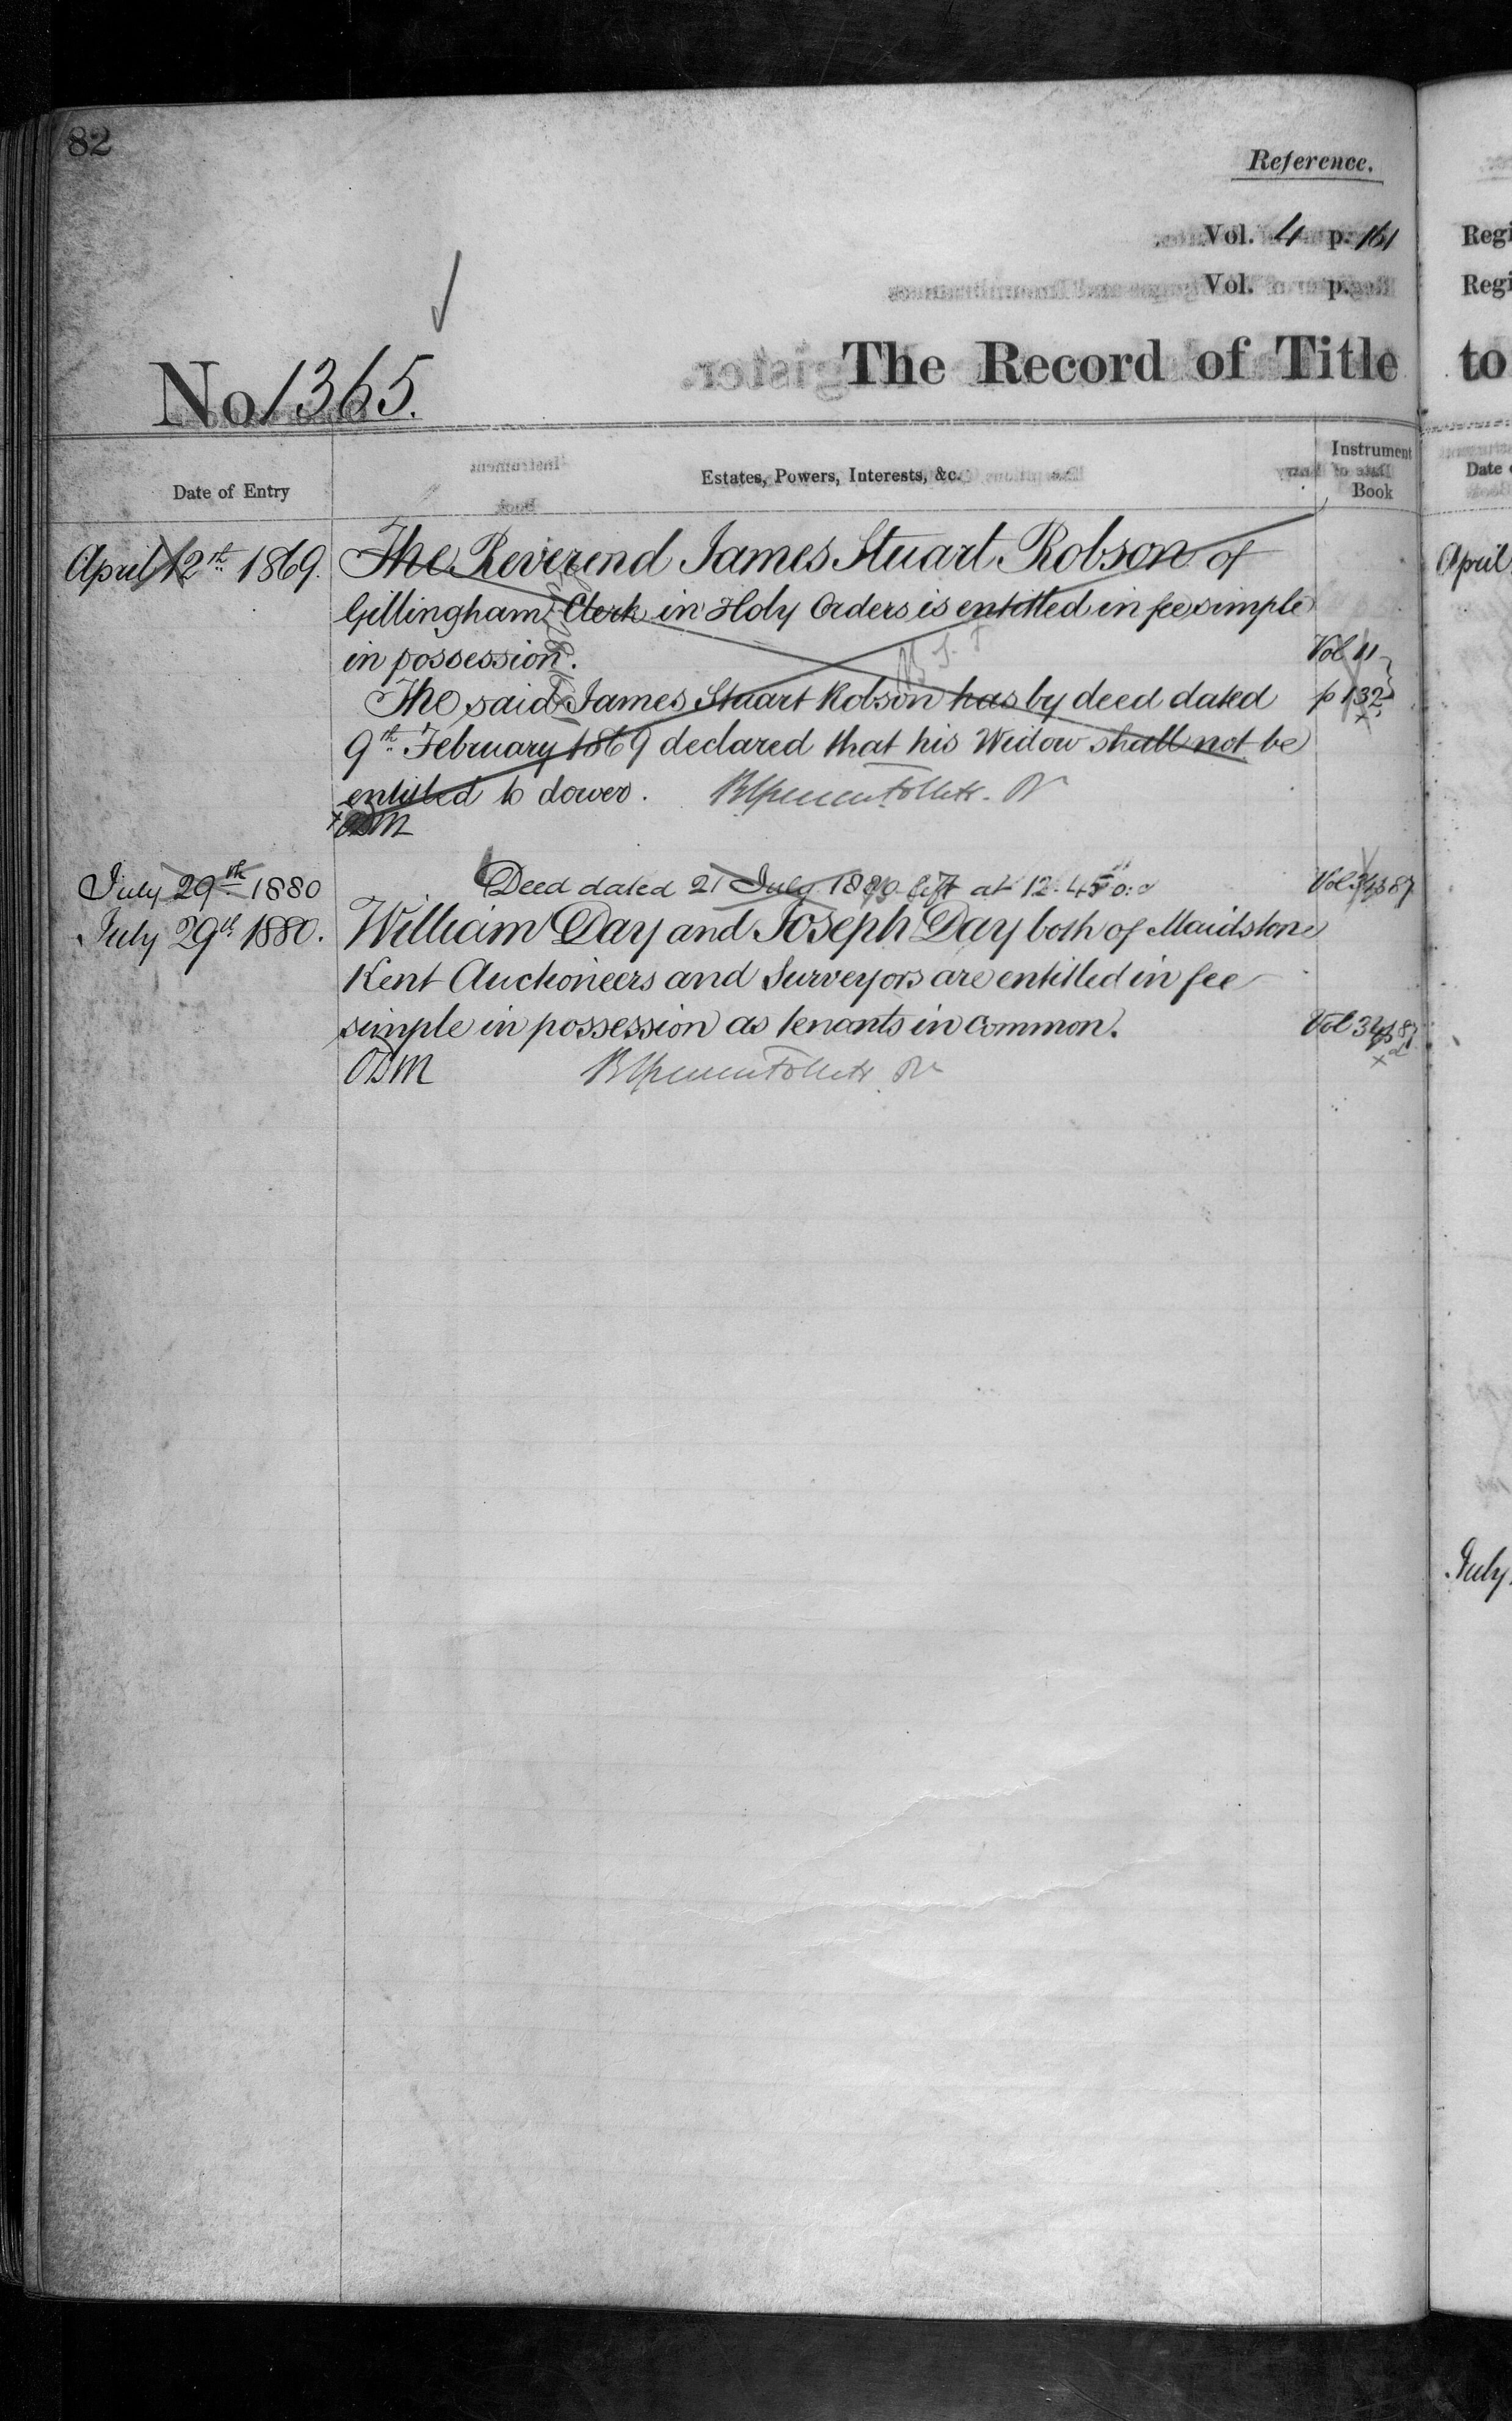 82
Reference.
Vol. 4 p. 161
Vol. p.
No 1365.
The Record of Title
Date of Entry
Estates, Powers, Interests, &c.
Instrument
Book
April 12th 1869. The Reverend James Stuart Robson of
Gillingham Clerk in Holy Orders is entitled in fee simple
in possession. Vol 11
The said James Stuart Robson has by deed dated p 132
9th February 1869 declared that his Widow shall not be
entitled to dower.
July 29th 1880 Deed dated 21 July 1880 left at 12.45 Vol 34 p 87
July 29th 1880. William Day and Joseph Day both of Maidstone
Kent Auctioneers and Surveyors are entitled in fee
simple in possession as tenants in common. Vol 34 p 87
Regi
Regi
to
Date
April
July